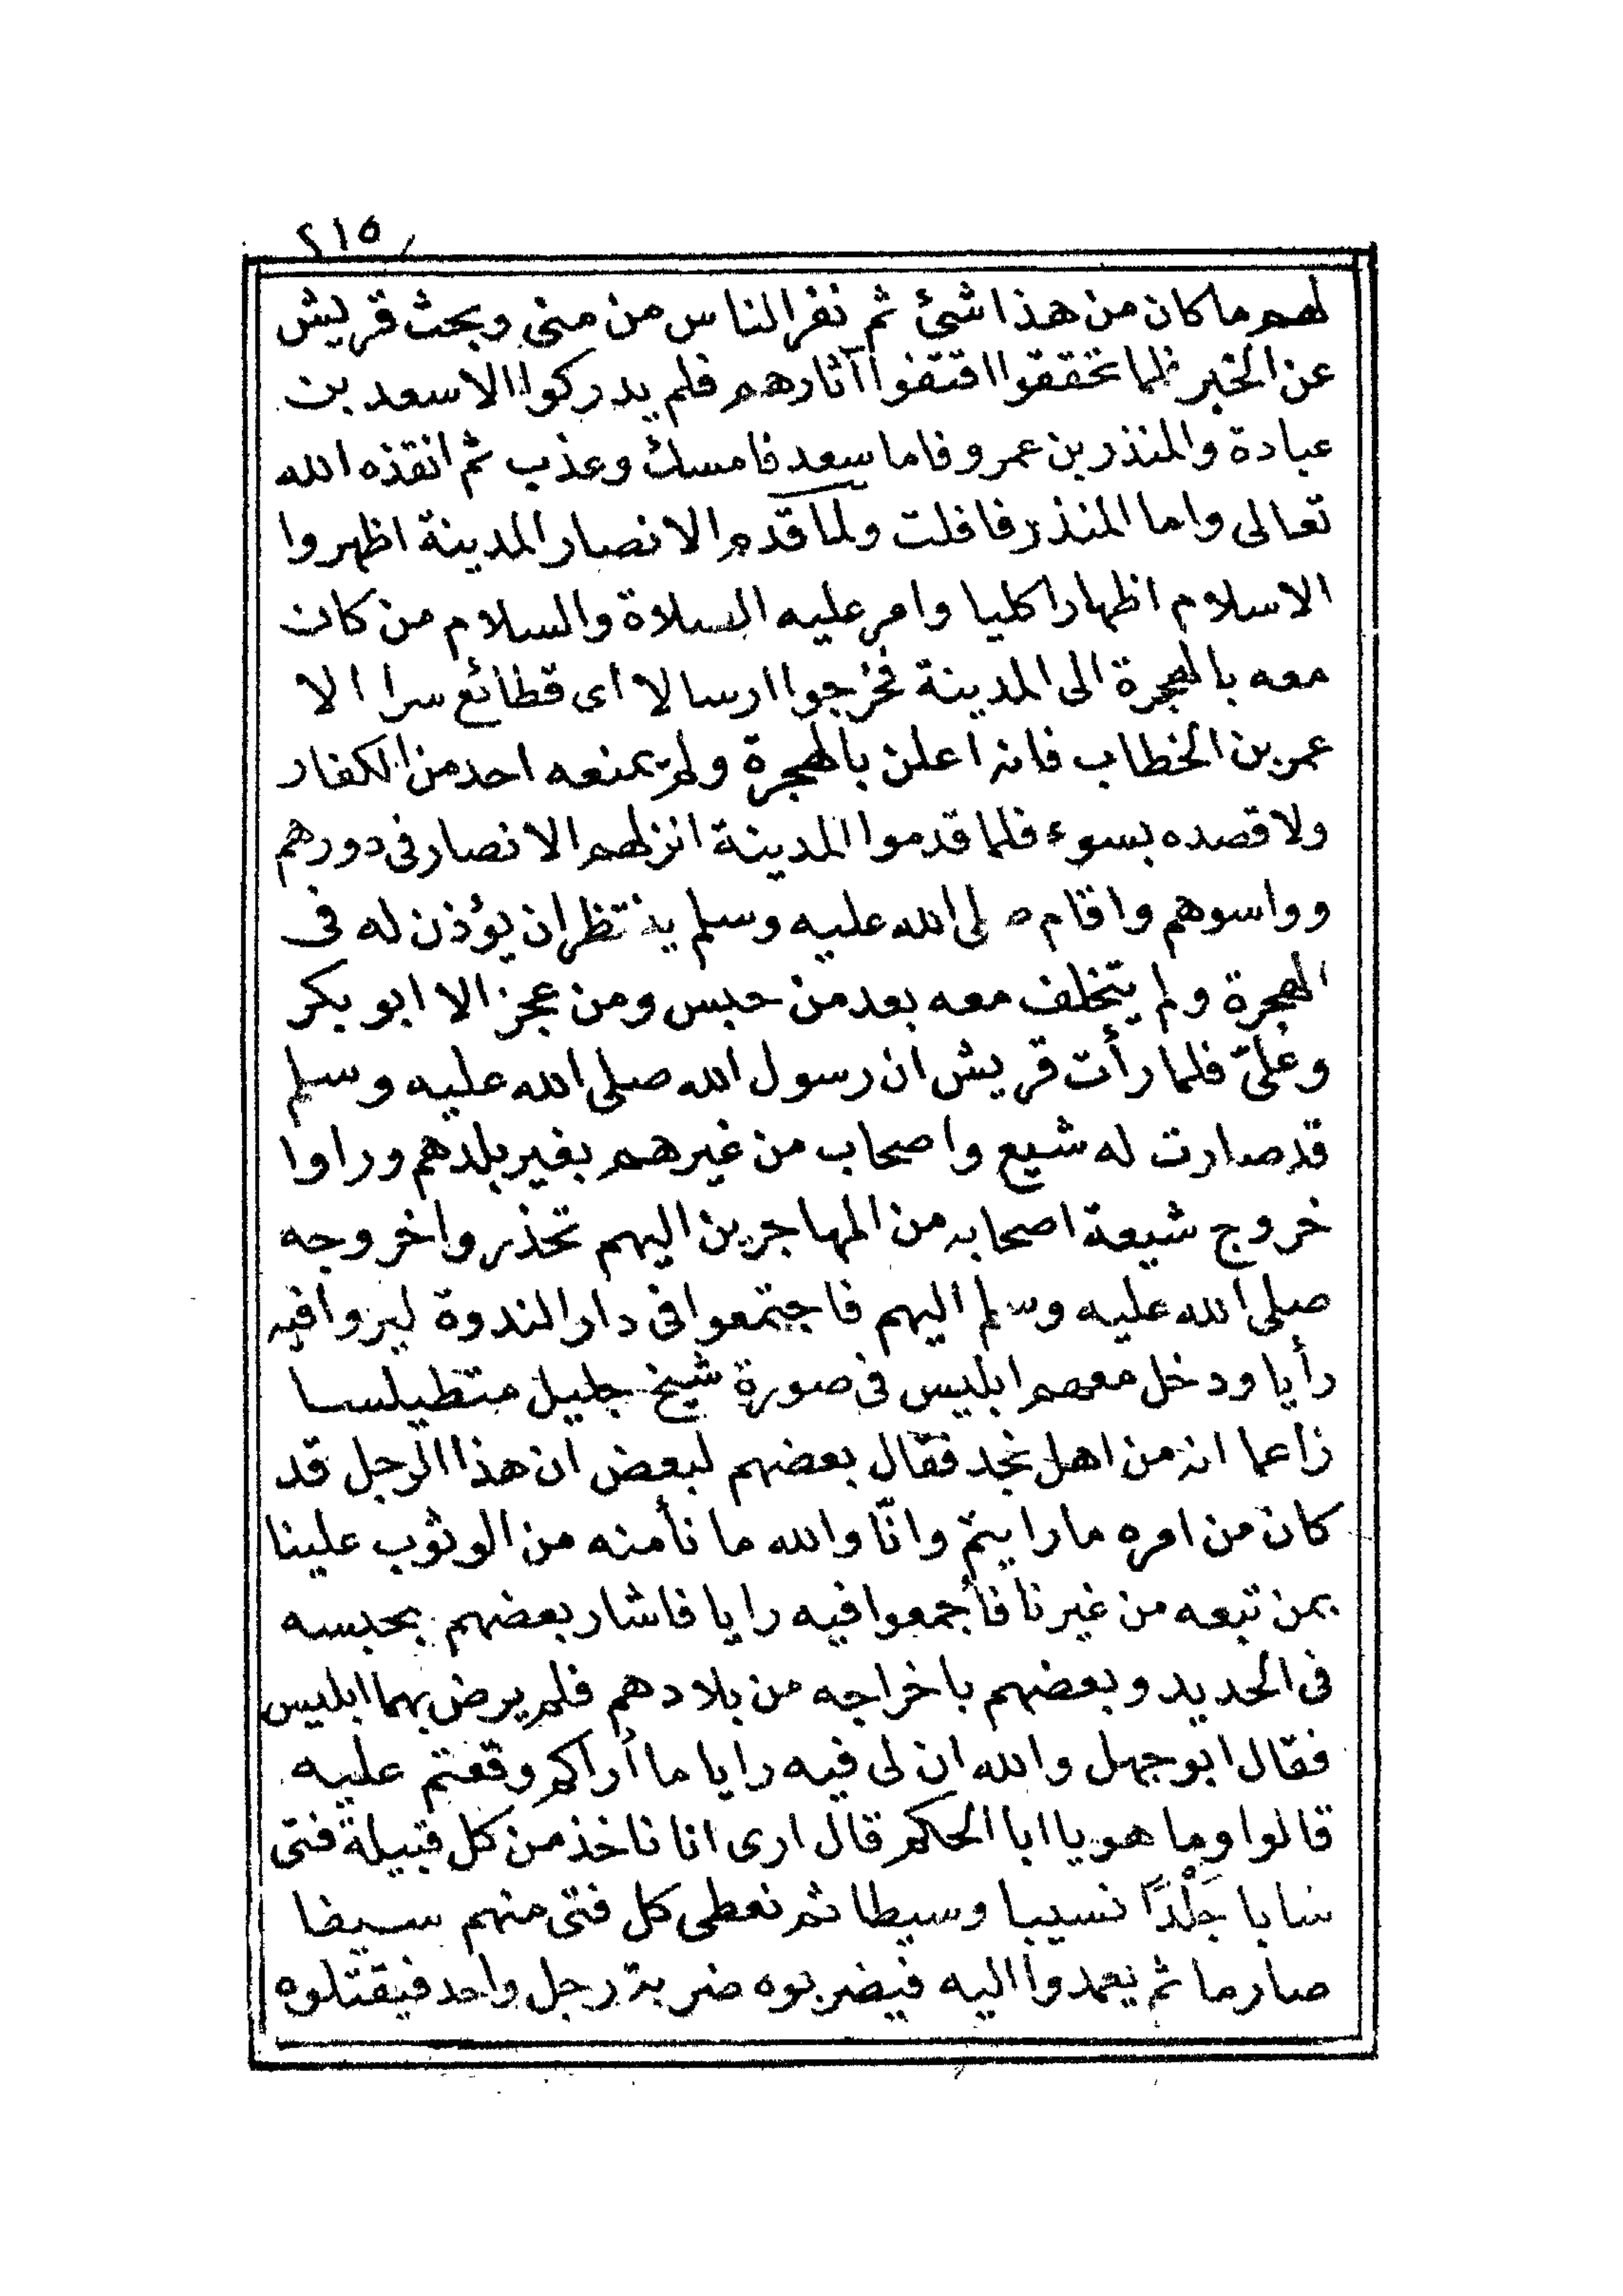 ٢١٥
لهم ما كان من هذا شئ ثم نفر الناس من منى وبحث قريش
عن الخبر فلما تحققوا اقتفوا آثارهم فلم يدركوا الا سعد بن
عبادة والمنذر بن عمرو فاما سعد فامسك وعذب ثم انقذه الله
تعالى واما المنذر فافلت ولما قدم الانصار المدينة اظهروا
الاسلام اظهارا كليا وامر عليه الصلاة والسلام من كان
معه بالهجرة الى المدينة فخرجوا ارسالا اى قطائع سرا الا
عمر بن الخطاب فانه اعلن بالهجرة ولم يمنعه احد من الكفار
ولا قصده بسوء فلما قدموا المدينة انزلهم الانصار فى دورهم
وواسوهم واقام صلى الله عليه وسلم ينتظر ان يؤذن له فى
الهجرة ولم يتخلف معه بعد من حبس ومن عجز الا ابو بكر
وعلىّ فلما رأت قريش ان رسول الله صلى الله عليه وسلم
قد صارت له شيع واصحاب من غيرهم بغير بلدهم وراوا
خروج شيعة اصحابه من المهاجرين اليهم تحذروا خروجه
صلى الله عليه وسلم اليهم فاجتمعوا فى دار الندوة ليروا فيه
رأيا ودخل معهم ابليس فى صورة شيخ جليل متطيلسا
زاعما انه من اهل نجد فقال بعضهم لبعض ان هذا الرجل قد
كان من امره ما رايتم وانّا والله ما نأمنه من الوثوب علينا
بمن تبعه من غيرنا فأجمعوا فيه رايا فاشار بعضهم بحبسه
فى الحديد وبعضهم باخراجه من بلادهم فلم يرض بهما ابليس
فقال ابو جهل والله ان لى فيه رايا ما أراكم وقعتم عليه
قالوا وما هو يا ابا الحكم قال ارى انا ناخذ من كل قبيلة فتى
شابا جَلْدًا نسيبا وسيطا ثم نعطى كل فتى منهم سيفا
صارما ثم يعمدوا اليه فيضربوه ضربة رجل واحد فيقتلوه